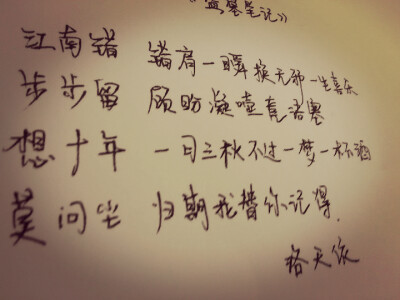 《盗墓笔记》
江南错 错肩一瞬换无邪一生喜乐
步步留 顾盼凝噎
想十年 一日三秋不过一梦一杯酒
莫问尘 归期我替你记得.
天依